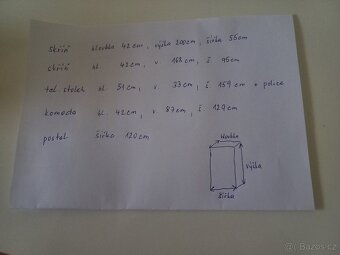 skříň hloubka 42cm, výška 200cm, šířka 55cm
skříň hl. 42cm, v. 168cm, š. 95cm
tel. stolek hl. 51cm, v. 33cm, š. 159cm + police
komoda hl. 42cm, v. 87cm, š. 129cm
postel šířka 120cm
hloubka
výška
šířka
Bazos.cz